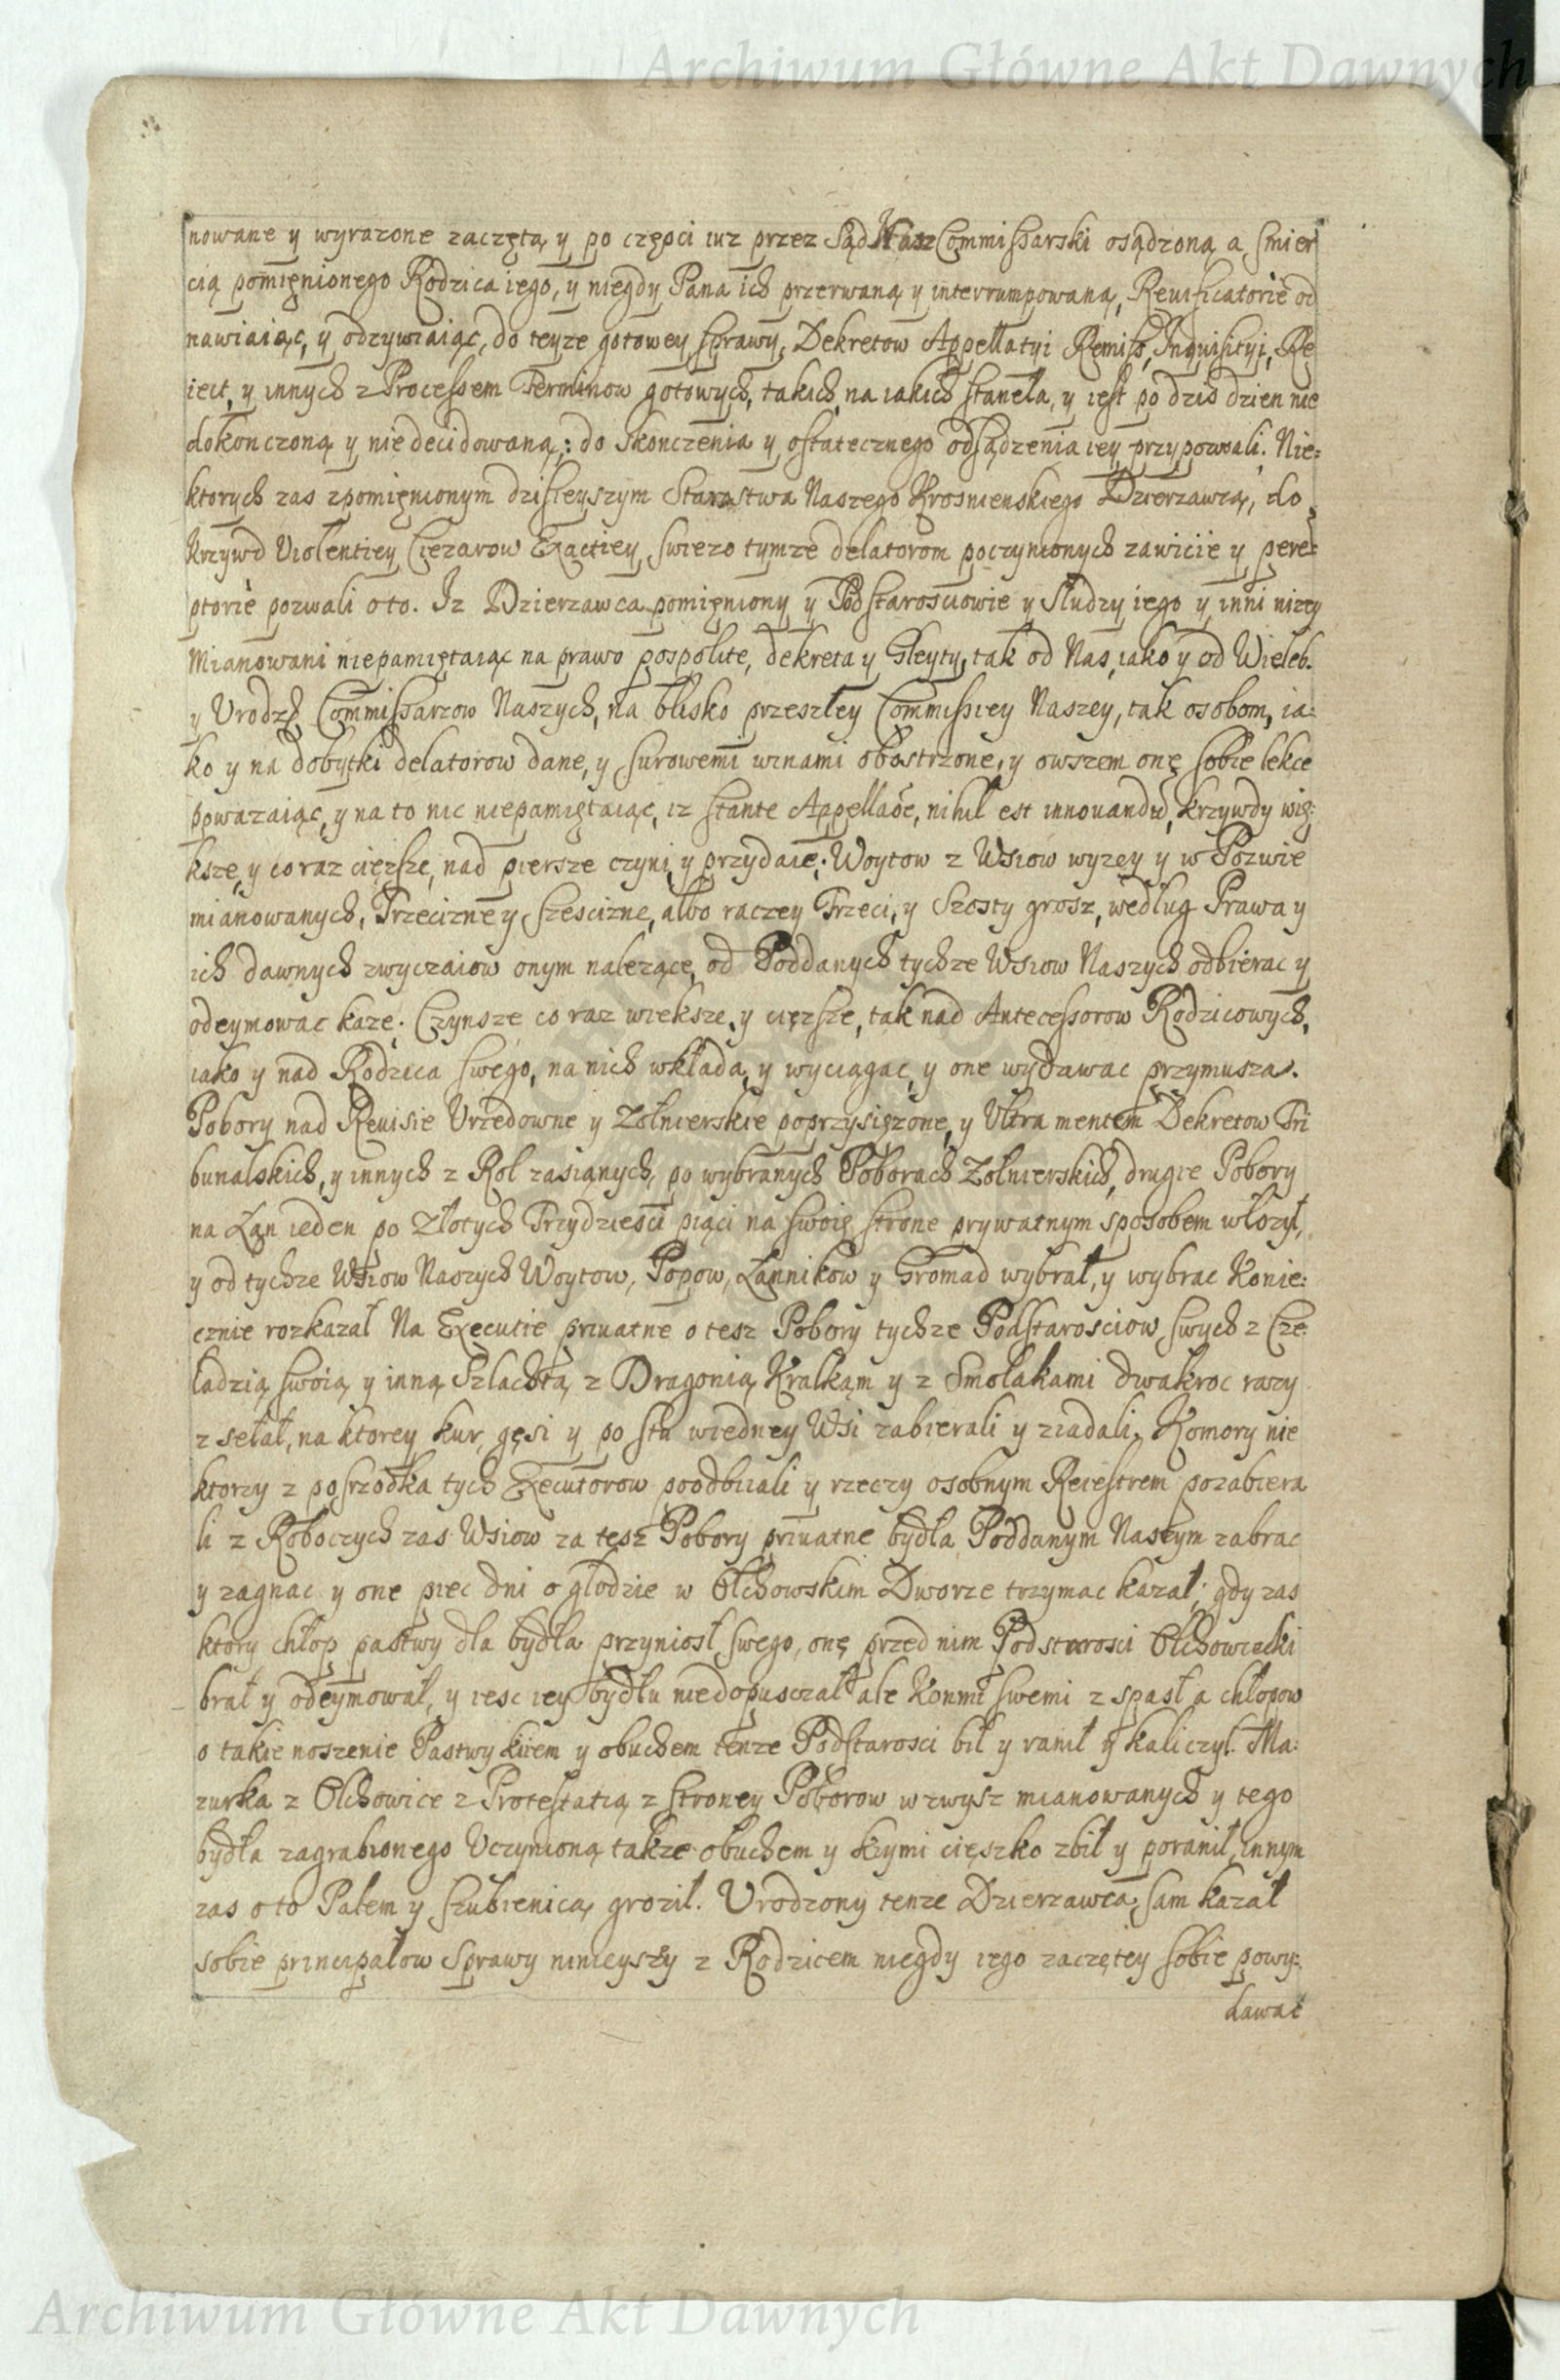 Archiwum Główne Akt Dawnych
nowane y wyrazone zaczętą y po części iuz przez Sąd Nasz Commissarski osądzoną a smier
cią pomięnionego Rodzica iego, y niegdy Pana ich przerwaną y interrumpowaną, Reuificatoriè od
nawiaiąc, y odzywiaiąc, do teyze gotowey sprawy, Dekretow Appellatyi Remiss, Inquisityi, Re
iect, y innych z Processem Terminow gotowych, takich, na iakich stanęła, y iest po dzis dzien nie
dokonczoną y nie decidowaną: do skonczenia y ostatecznego odsądzenia iey przypozwali. Nie=
ktorych zas zpomięnionym dzisieyszym Starostwa Naszego Krosnienskiego Dzierzawcą, do
krzywd Violentiey Ciezarow Exactiey swiezo tymze delatorom poczynionych zawicie y pere=
ptoriè pozwali oto. Iz Dzierzawca pomięniony y Podstarosciowie y Słudzy iego y inni nizey
Mianowani niepamiętaiąc na prawo pospolite, dekreta y Gleyty, tak od Nas, iako y od Wieleb.
y Urodz. Commissarzow Naszych, na blisko przeszłey Commissiey Naszey, tak osobom, ia=
ko y na dobytki delatorow dane, y surowemi winami obostrzone, y owszem onę sobie lekce
powazaiąc, y na to nic niepamiętaiąc, iz stante Appellaoe, nihil est innouandu, krzywdy wię=
ksze, y co raz cięzsze, nad piersze czyni y przydaie; Woytow z Wsiow wyzey y w Pozwie
mianowanych, Trzecizne y szescizne, albo raczey Trzeci, y Szosty grosz, według Prawa y
ich dawnych zwyczaiow onym nalezące, od Poddanych tychze Wsiow Naszych odbierac y
odeymowac kaze; Czynsze co raz wieksze, y cięzsze, tak nad Antecessorow Rodzicowych,
iako y nad Rodzica swego, na nich wkłada, y wyciągac, y one wydawac przymusza.
Pobory nad Reuisie Urzedowne y Zołnierskie poprzysięzone, y Ultra mentem Dekretow Tri
bunalskich, y innych z Rol zasianych, po wybranych Poborach Zołnierskich, drugie Pobory
na Łan ieden po Złotych Trzydziesci piąci na swoię strone prywatnym sposobem włozył,
y od tychze Wsiow Naszych Woytow, Popow, Łannikow y Gromad wybrał, y wybrac Konie=
cznie rozkazał Na Executie priuatne o tesz Pobory tychze Podstarosciow swych z Cze
ladzią swoią y inną Szlachtą z Dragonią Kralkąm y z Smolakami dwakroc razy
zsełał, na ktorey kur, gęsi y po stu wiedney Wsi zabierali y ziadali, Komory nie
ktorzy z posrzodka tych Executorow poodbiiali y rzeczy osobnym Reiestrem pozabiera
li z Roboczych zas Wsiow za tesz Pobory priuatne bydła Poddanym Naszym zabrac
y zagnac y one piec dni o głodzie w Olchowskim Dworze trzymac kazał; gdy zas
ktory chłop pastwy dla bydła przyniosł swego, onę przed nim Podstarosci Olchowiecki
brał y odeymował, y iesc iey bydłu niedopusczał ale Konmi swemi zspasł a chłopow
o takie noszenie Pastwy kiiem y obuchem tenze Podstarosci bił y ranił y kaliczył. Ma=
zurka z Olchowice z Protestatią z strony Poborow wzwysz mianowanych y tego
bydła zagrabionego Uczynioną także obuchem y kiymi cięszko zbił y poranił, innym
zas o to Palem y szubienicą groził. Urodzony tenze Dzierzawca sam kazał
sobie principałow Sprawy ninieyszy z Rodzicem niegdy iego zaczętey sobie powy=
dawac
Archiwum Główne Akt Dawnych